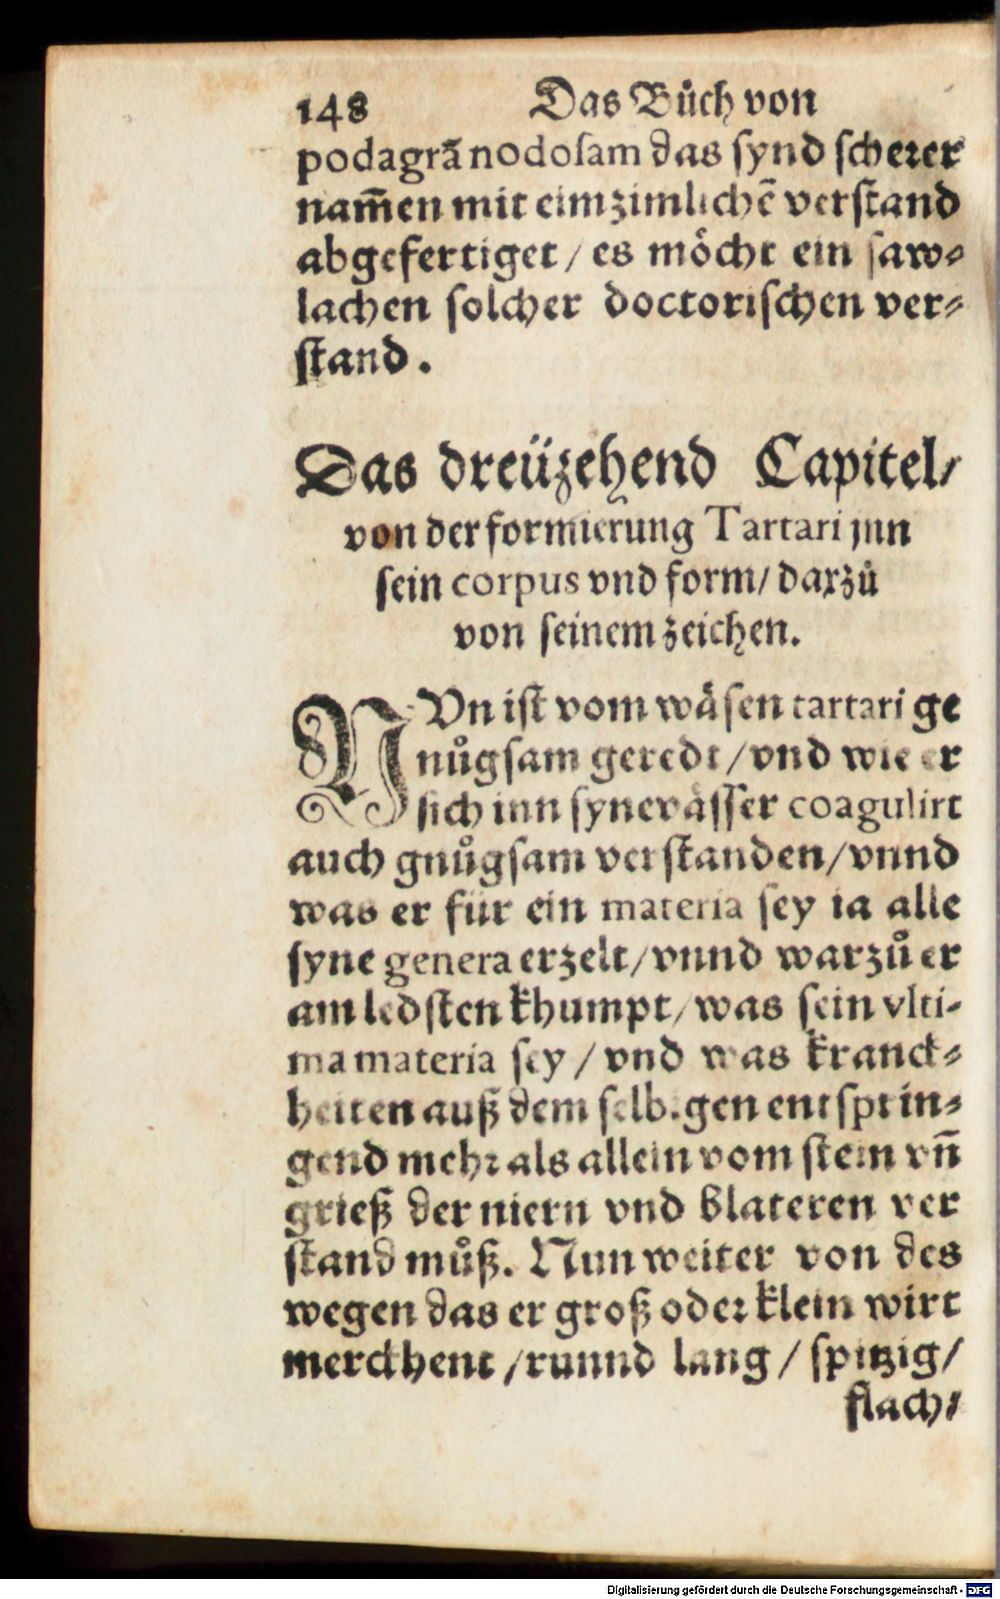 148 Das Bůch von
podagrã nodosam das synd scherer
nam̄en mit eim zimlichẽ verstand
abgefertiget / es möcht ein saw⸗
lachen solcher doctorischen ver⸗
stand.
Das dreüzehend Capitel/
von der formierung Tartari jnn
sein corpus vnd form / darzů
von seinem zeichen.
NVn ist vom wäsen tartari ge
nůgsam geredt / vnd wie er
sich inn syne vässer coagulirt
auch gnůgsam verstanden / vnnd
was er für ein materia sey ia alle
syne genera erzelt / vnnd warzů er
am ledsten khumpt / was sein vlti-
ma materia sey / vnd was kranck⸗
heiten auß dem selbigen entsprin⸗
gend mehr als allein vom stein vn̄
grieß der niern vnd blateren ver
stand můß. Nun weiter von des
wegen das er groß oder klein wirt
merckhent / runnd lang / spitzig /
flach /
Digitalisierung gefördert durch die Deutsche Forschungsgemeinschaft - DFG